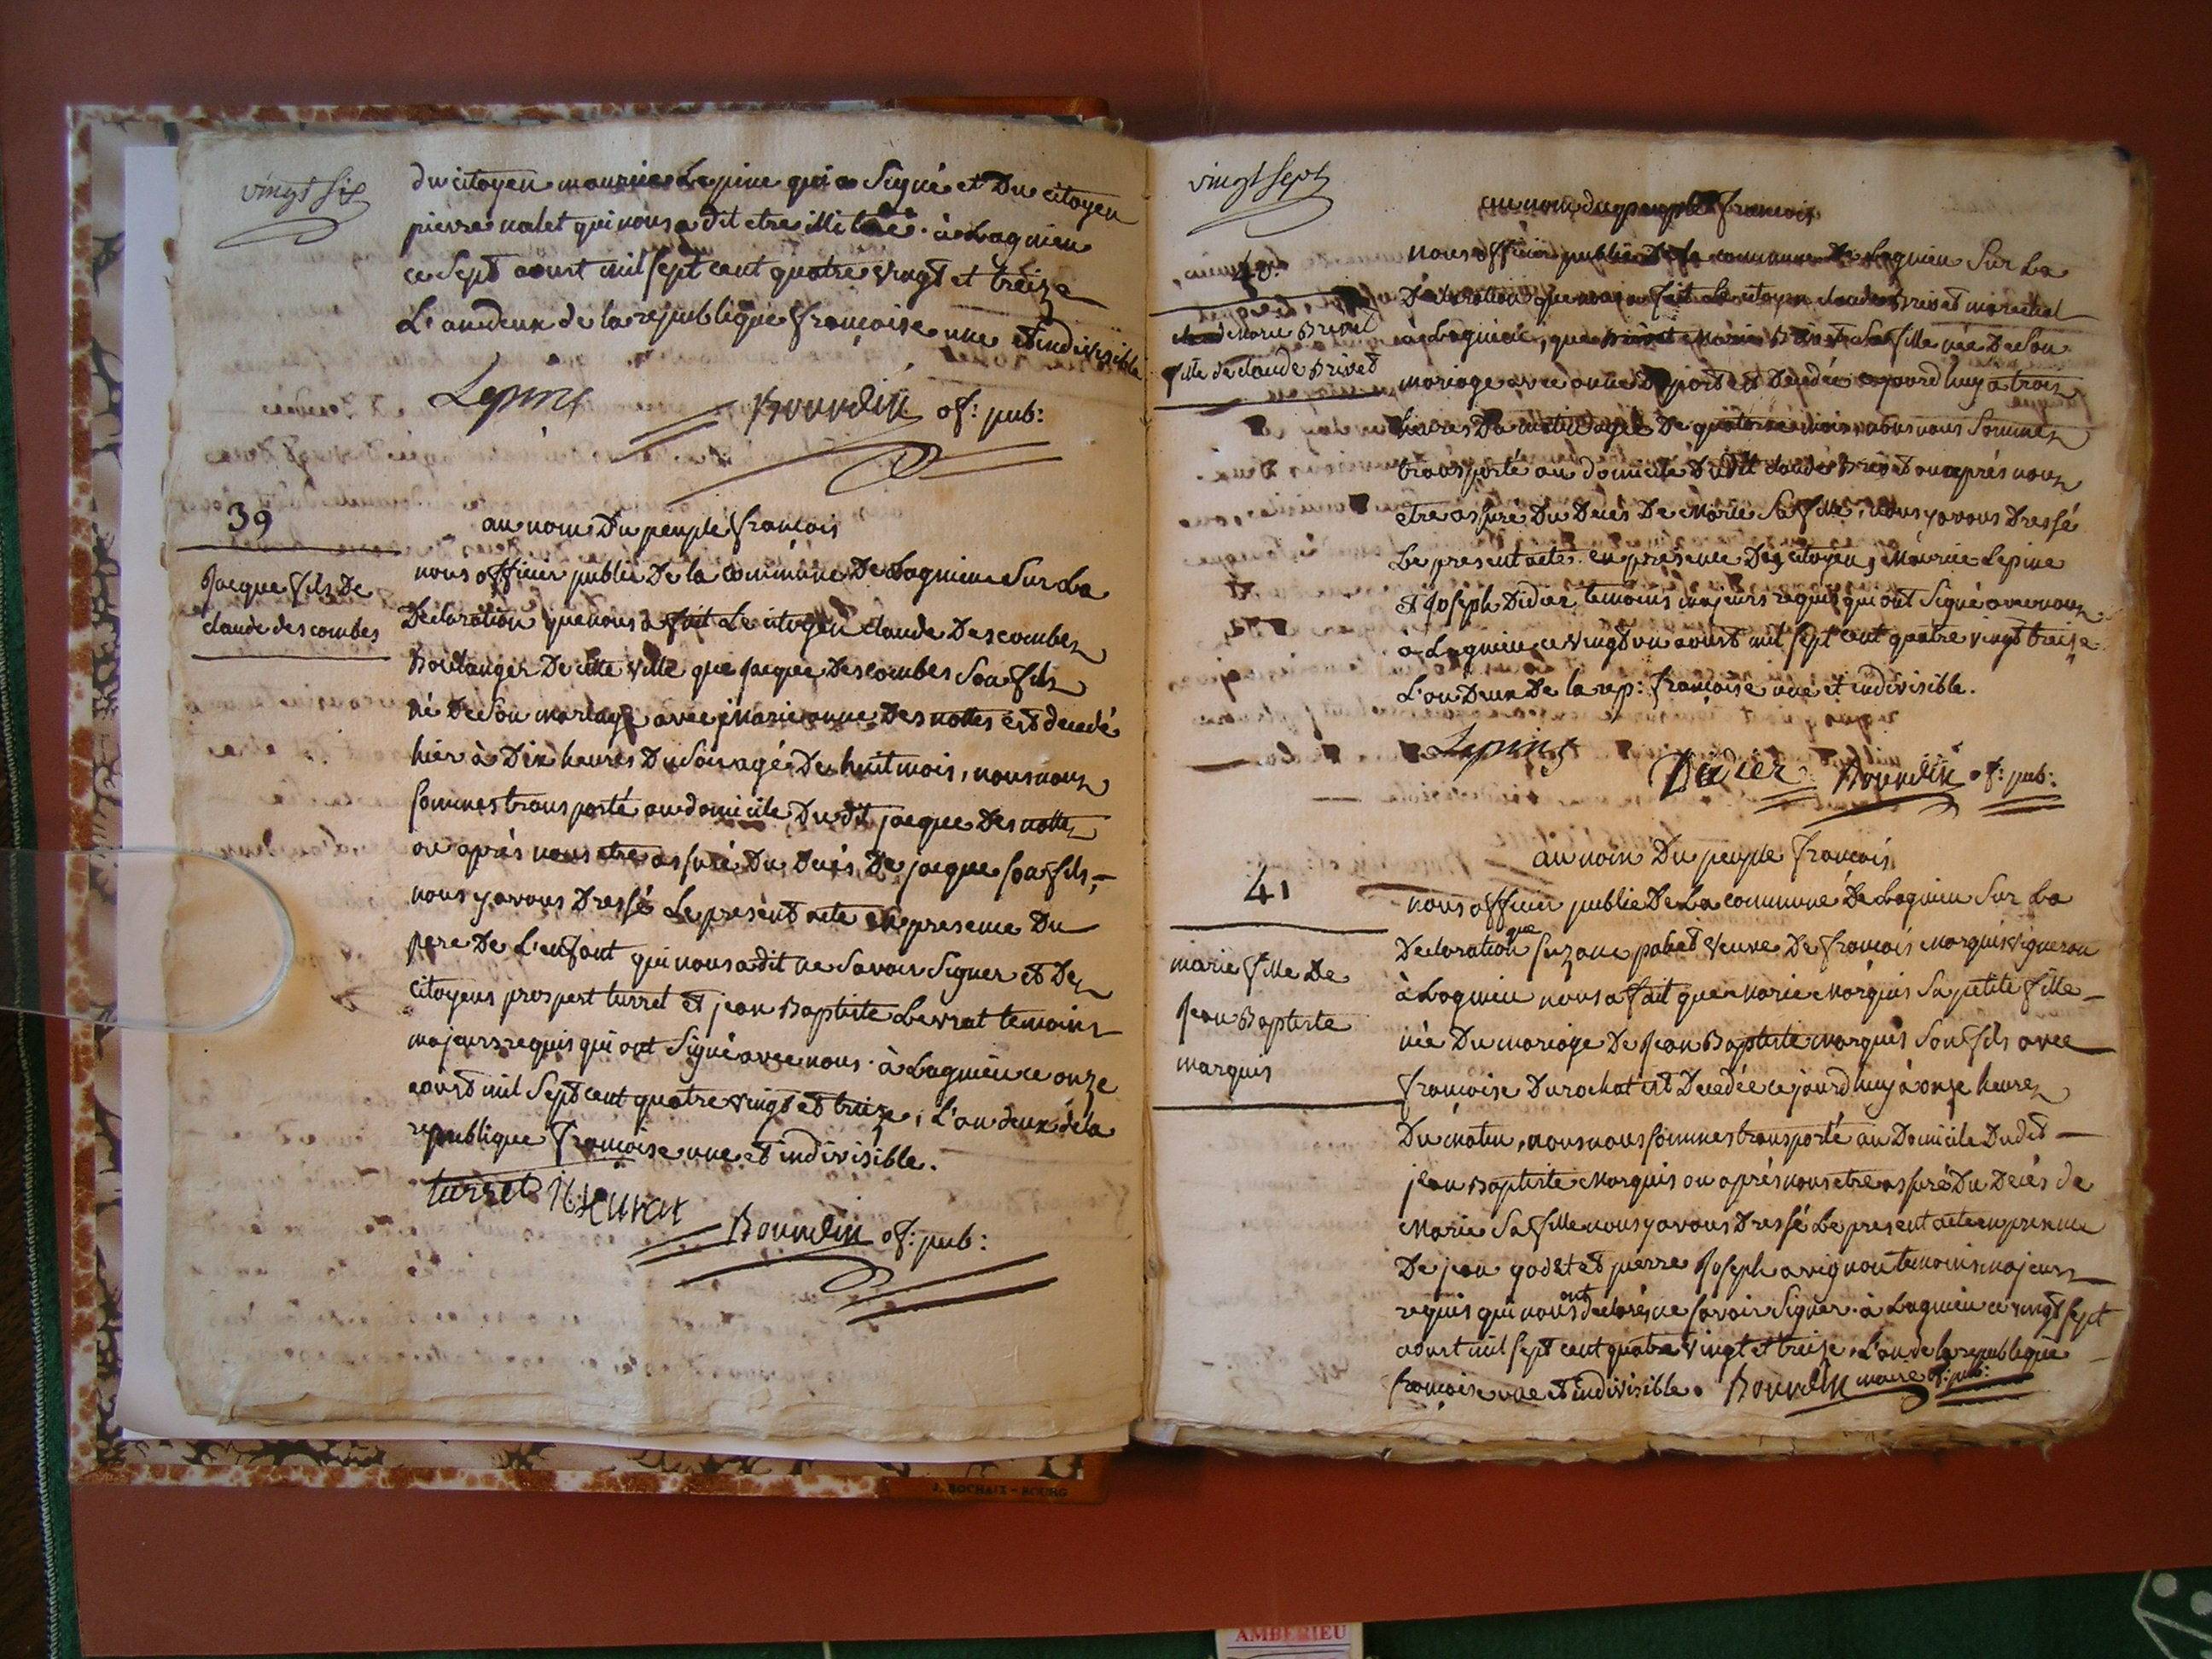 vingt six
du citoyen maurice Lepine qui a Signé et Du citoyen
pierre nalet qui nous a dit etre illi teré. à Lagnieu
ce Sept aoust mil sept cent quatre vingt et treize
L'an deux de la republique françoise une et indivisible
Lepine Bourdin of: pub:
39
Jacque fils De
claude descombes
au nom Du peuple françois
nous officier public De la commune De Lagnieu Sur La
Declaration que nous a fait Le citoyen claude Descombes
Boulanger De cette ville que jacque Descombes Son fils
né De Son mariage avec Marie anne Des nottes est decedé
hier à Dix heures Du Soir agé De huit mois, nous nous
sommes transporté au domicile Du dit jacque Des nottes
ou aprés nous etre assuré Du Decés De jacque son fils,
nous y avons Dressé Le present acte en presence Du
pere De L'enfant qui nous a dit ne Savoir Signer et Des
citoyens prospert turret et jean Baptiste Levrat temoins
majeurs requis qui ont Signé avec nous. à Lagnieu ce onze
aoust mil Sept cent quatre vingt et treize, L'an deux de la
republique françoise une et indivisible.
turret Levrat
Bourdin of: pub:
vingt sept
au nom du peuple françois
40
Marie Brivet
fille de claude Brivet
nous officier public De la commune De Lagnieu Sur La
Declaration que nous a fait Le citoyen claude Brivet marechal
à Lagnieu, que Marie Brivet Sa fille née De Son
mariage avec anne est Decedée aujourd huy a trois
heures Du matin agée De quatorze mois, nous nous Sommes
transporté au domicile Dudit claude Brivet ou aprés nous
etre assuré Du Decés De Marie Sa fille, nous y avons Dressé
Le present acte en presence Des citoyens Maurice Lepine
et Joseph Didier temoins majeurs requis qui ont Signé avec nous
a Lagnieu ce vingt un aoust mil sept cent quatre vingt treize
L'an Deux De la rep: françoise une et indivisible.
Lepine
Didier Bourdin of: pub:
41
marie fille De
Jean Baptiste
marquis
au nom Du peuple françois
nous officier public De La commune De Lagnieu Sur La
Declaration que suzane veuve De françois Marquis vigneron
à Lagnieu nous a fait que Marie Marquis Sa petite fille
née Du mariage De Jean Baptiste Marquis Son fils avec
françoise Durochat est Decedée ce jourd huy à onze heures
Du matin, nous nous sommes transporté au Domicile Dudit
jean Baptiste Marquis ou aprés nous etre assuré Du Decés de
Marie Sa fille nous y avons Dressé Le present acte en presence
De jean godet et pierre Joseph avignon temoins majeurs
requis qui nous ont declarés ne savoir Signer. à Lagnieu ce vingt sept
aoust mil sept cent quatre vingt et treize. L'an de la republique
françoise une et indivisible. Bourdin maire of: pub:
J. ROCHAIX - BOURG
AMBERIEU